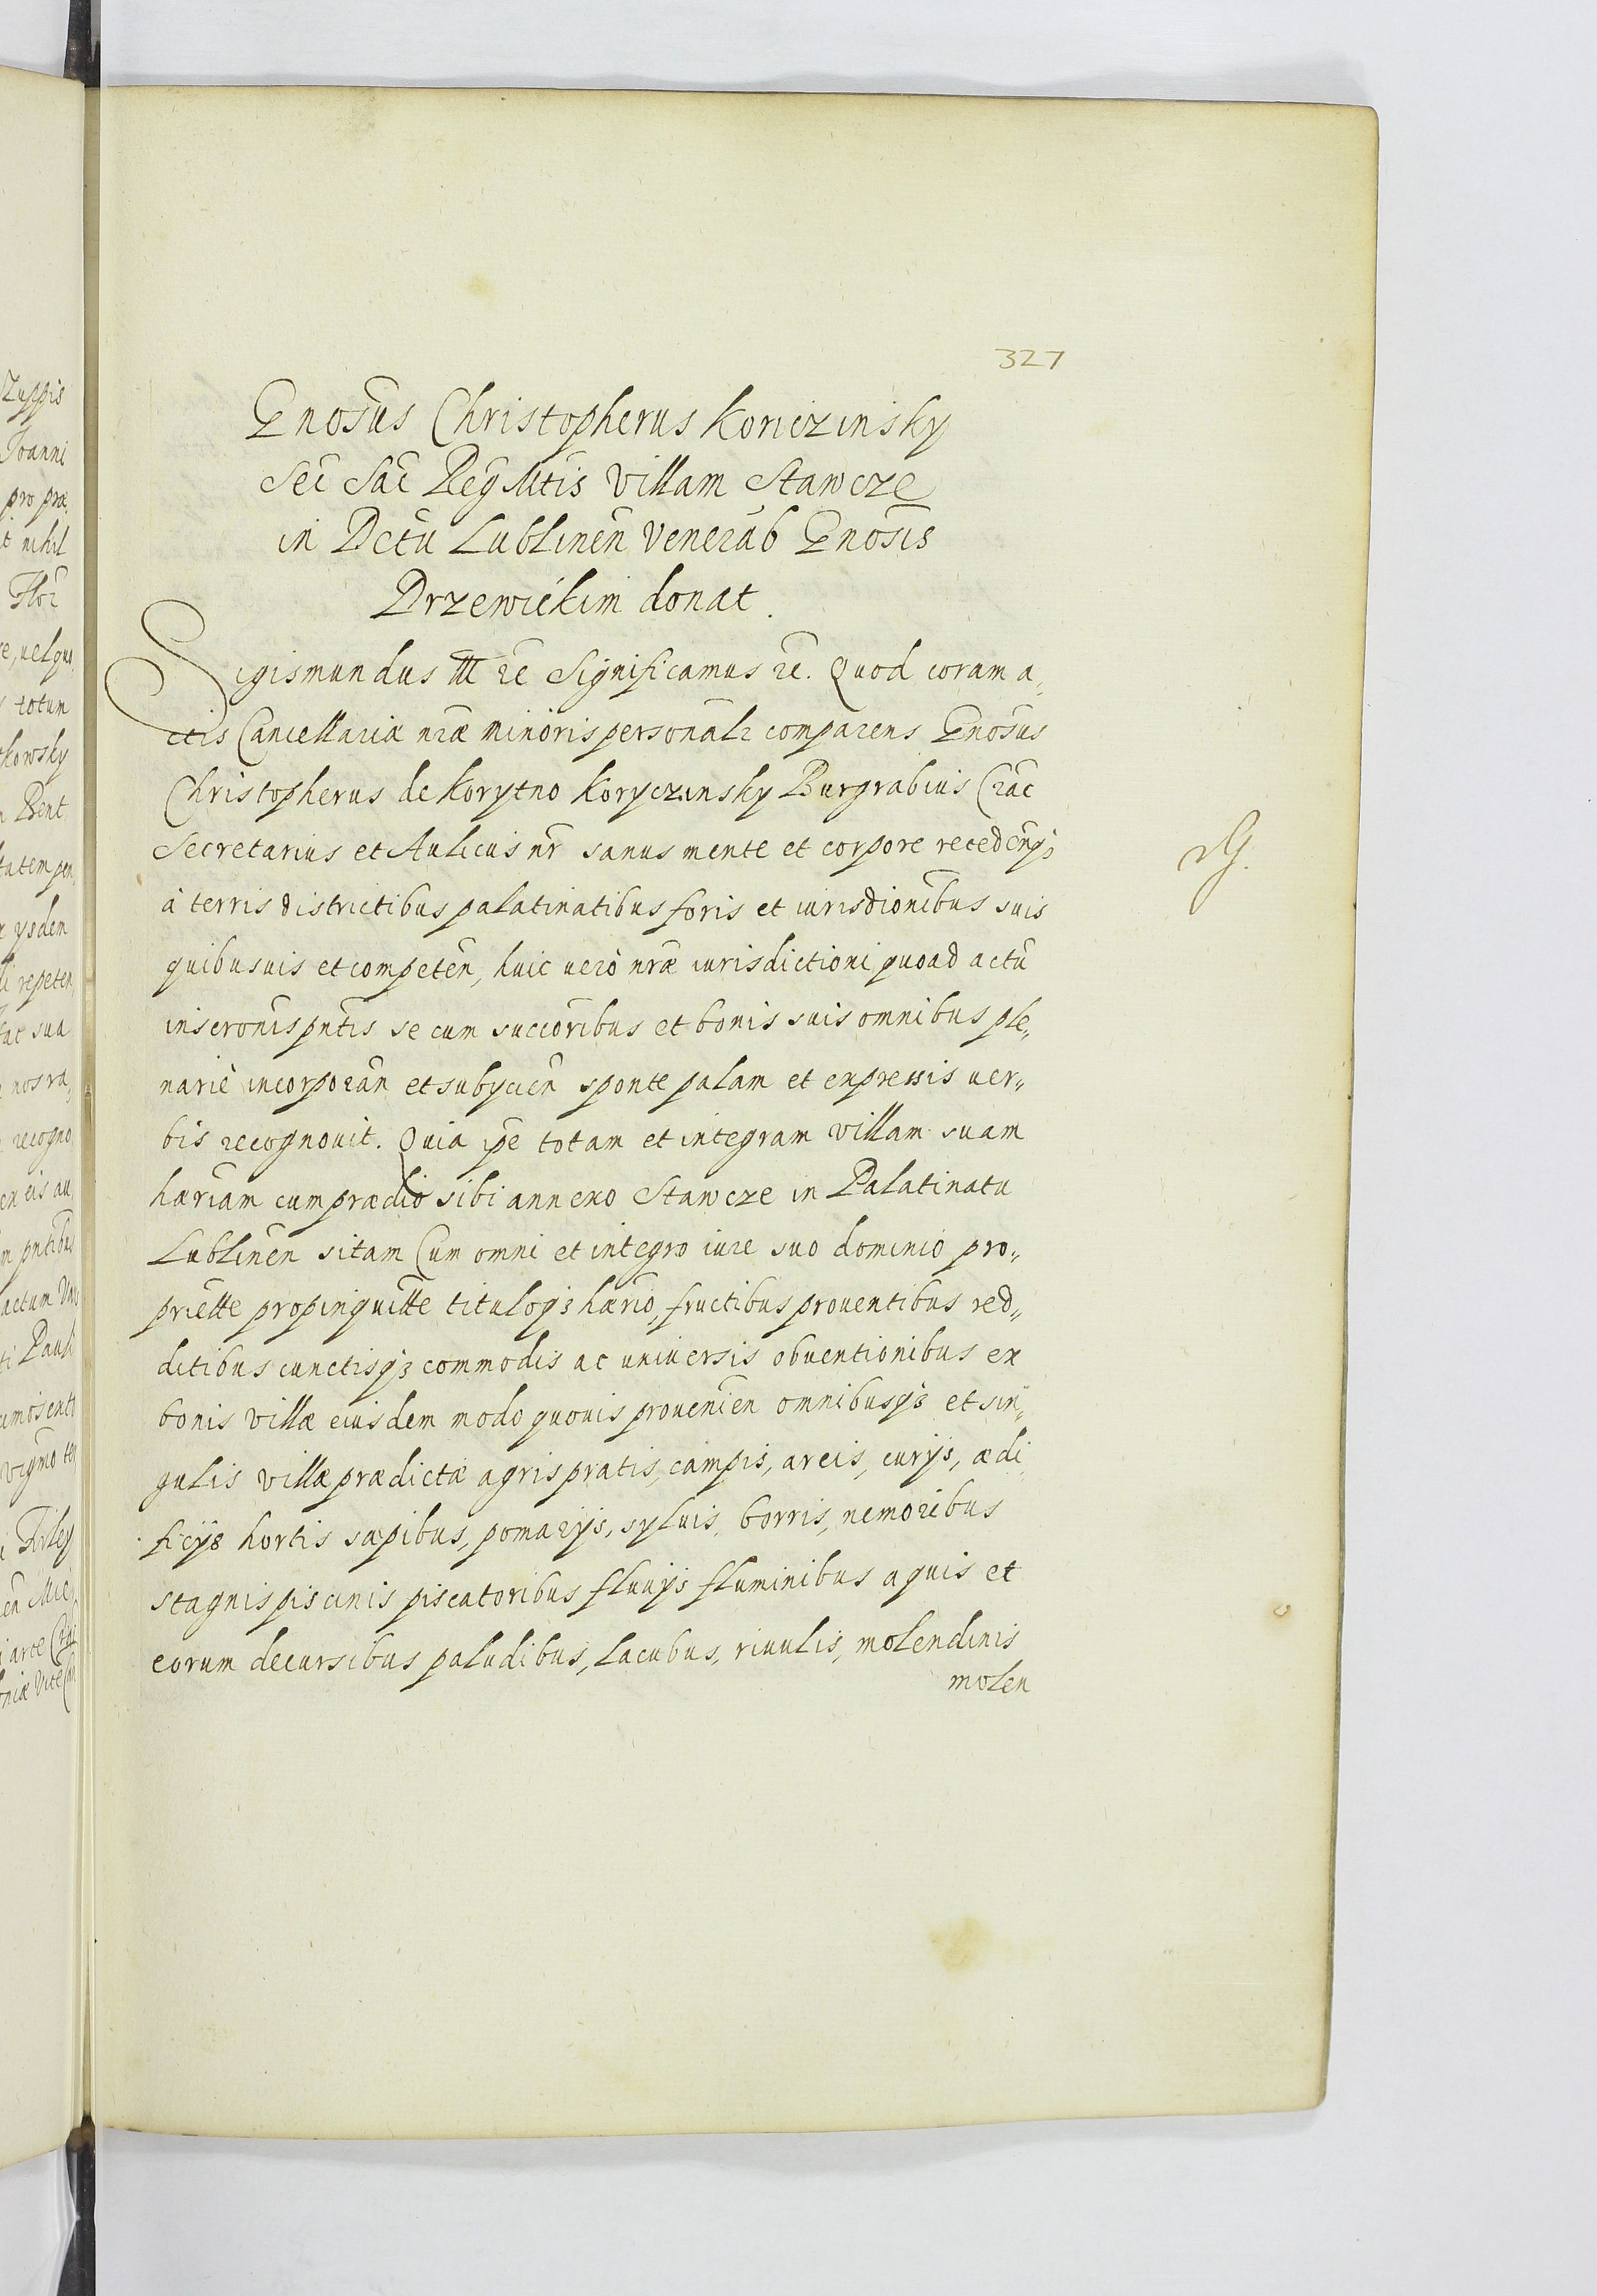 327
Gnosus Christopherus Koriczinsky
Sec Sac Reg Mtis villam Stawcze
in Dctu Lublinen Venerab Gnosis
Drzewickim donat.
Sigismundus III rc Significamus rc. Quod coram a„
ctis Cancellariæ nræ minoris personalr comparens Gnosus
Christopherus de Korytno Koryczinsky Burgrabius Crac
Secretarius et Aulicus nr sanus mente et corpore receden̄q3
à terris districtibus palatinatibus foris et iurisdionibus suis
quibusuis et competen, huic uerò nræ iurisdictioni quoad actū
inscronis pntis se cum succoribus et bonis suis omnibus ple„
nariè incorporan et subycien sponte palam et expressis uer„
bis recognouit. Quia ipe totam et integram villam suam
hæriam cum prædio sibi annexo Stawcze in Palatinatu
Lublinen sitam Cum omni et integro iure suo dominio pro„
priette propinquitte tituloq3 hærio, fructibus prouentibus red„
ditibus cunctisq3 commodis ac uniuersis obuentionibus ex
bonis villæ eiusdem modo quouis prouenien omnibusq3 et sin„
gulis villæ prædictæ agris pratis, campis, areis, curijs, ædi„
ficijs hortis sæpibus, pomarijs, syluis, borris, nemoribus
stagnis piscinis piscatoribus fluuijs fluminibus aquis et
eorum decursibus paludibus, lacubus, riuulis, molendinis
molen